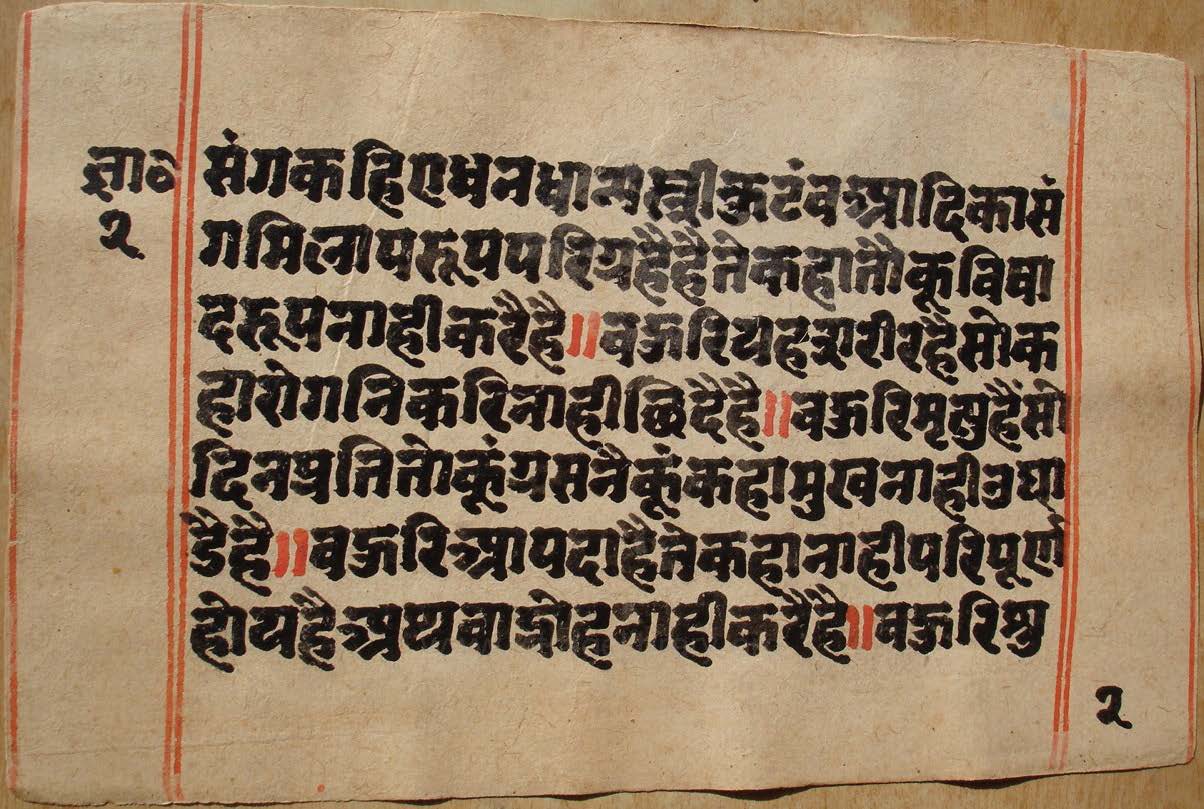 ज्ञा०
२
संगकहिएधनधान्यस्त्रीकुटंवआदिकासं
गमिलापरूपपरिग्रहहैतेकहातौकूविषा
दरूपनाहीकरैहै॥वऊरियहशरीरहैसोक
हारोगनिकरिनाहीछिदैहै॥वऊरिमृत्युहैसो
दिनप्रतितोकूंग्रसनैकूंकहामुखनाहीउघा
डैहै॥वऊरिआपदाहैतेकहानाहीपरिपूर्ण
होयहैअथवाद्रोहनाहीकरैहै॥वऊरिश्व
२